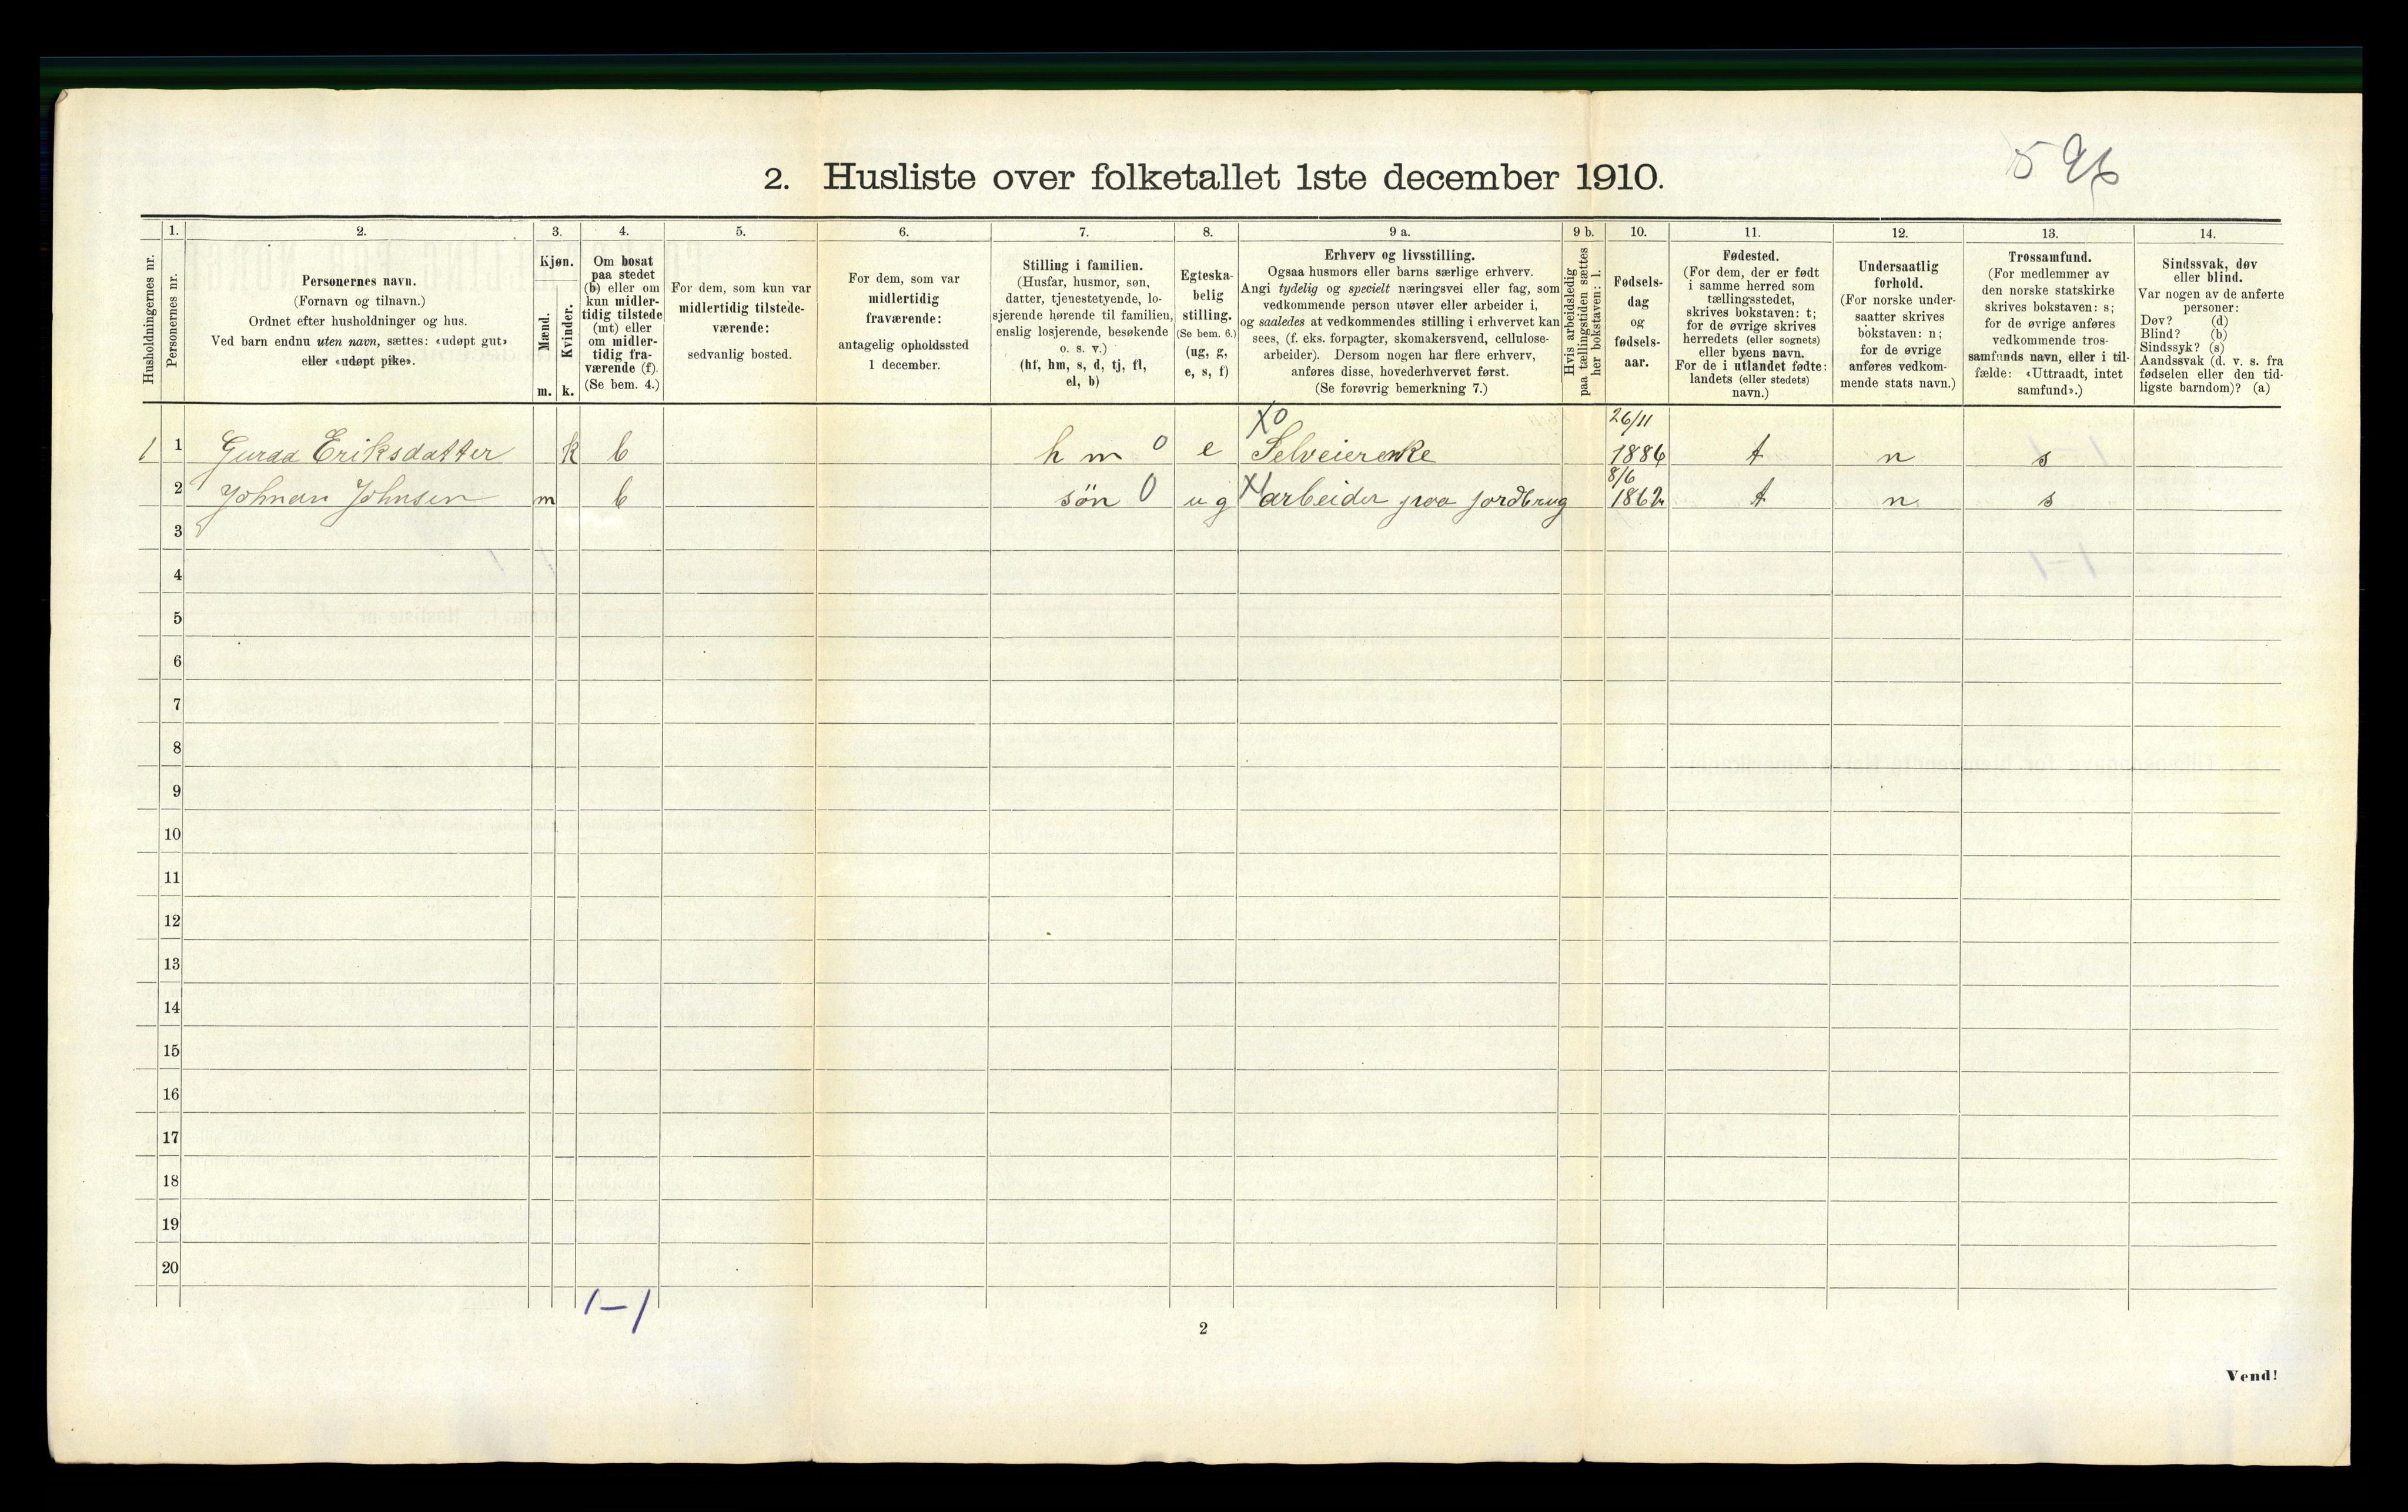 596
2. Husliste over folketallet 1ste december 1910.
Husholdningernes nr.
1.
Personernes nr.
2.
Personernes navn.
(Fornavn og tilnavn.)
Ordnet efter husholdninger og hus.
Ved barn endnu uten navn, sættes: «udøpt gut»
eller «udøpt pike».
3.
Kjøn.
Mænd.
m.
Kvinder.
k.
4.
Om bosat
paa stedet
(b) eller om
kun midler-
tidig tilstede
(mt) eller
om midler-
tidig fra-
værende (f).
(Se bem. 4.)
5.
For dem, som kun var
midlertidig tilstede-
værende:
sedvanlig bosted.
6.
For dem, som var
midlertidig
fraværende:
antagelig opholdssted
1 december.
7.
Stilling i familien.
(Husfar, husmor, søn,
datter, tjenestetyende, lo-
sjerende hørende til familien,
enslig losjerende, besøkende
o. s. v.)
(hf, hm, s, d, tj, fl,
el, b)
8.
Egteska-
belig
stilling.
(Se bem. 6.)
(ug, g,
e, s, f)
9 a.
Erhverv og livsstilling.
Ogsaa husmors eller barns særlige erhverv.
Angi tydelig og specielt næringsvei eller fag, som
vedkommende person utøver eller arbeider i,
og saaledes at vedkommendes stilling i erhvervet kan
sees, (f. eks. forpagter, skomakersvend, cellulose-
arbeider). Dersom nogen har flere erhverv,
anføres disse, hovederhvervet først.
(Se forøvrig bemerkning 7.)
9 b.
Hvis arbeidsledig
paa tællingstiden sættes
her bokstaven: l.
10.
Fødsels-
dag
og
fødsels-
aar.
11.
Fødested.
(For dem, der er født
i samme herred som
tællingsstedet,
skrives bokstaven: t;
for de øvrige skrives
herredets (eller sognets)
eller byens navn.
For de i utlandet fødte:
landets (eller stedets)
navn.)
12.
Undersaatlig
forhold.
(For norske under-
saatter skrives
bokstaven: n;
for de øvrige
anføres vedkom-
mende stats navn.)
13.
Trossamfund.
(For medlemmer av
den norske statskirke
skrives bokstaven: s;
for de øvrige anføres
vedkommende tros-
samfunds navn, eller i til-
fælde: «Uttraadt, intet
samfund».)
14.
Sindssvak, døv
eller blind.
Var nogen av de anførte
personer:
Døv? (d)
Blind? (b)
Sindssyk? (s)
Aandssvak (d. v. s. fra
fødselen eller den tid-
ligste barndom)? (a)
X0 26/11
1 1 Guraa Eriksdatter k b hm 0 e Selveierenke t n s
8/6
2 Johnan Johnsen m b søn 0 ug X arbeider paa jordbrug 1862 t n s
3
4
5
6
7
8
9
10
11
12
13
14
15
16
17
18
19
20
1-1
2
Vend!